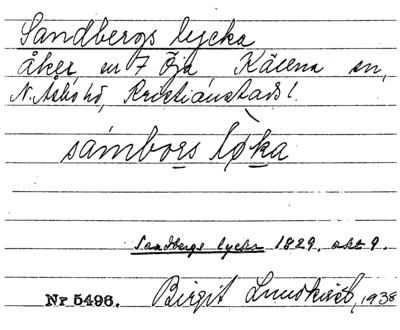 Sandbergs lycka
åker, nr 7 Öja, Kãlena sn,
N. Åsbo hd, Kristianstads l.
sámbors lø̀ka
Sandbergs lycka 1829. akt 9.
Nr 5496. Birgit Lundkvist, 1938